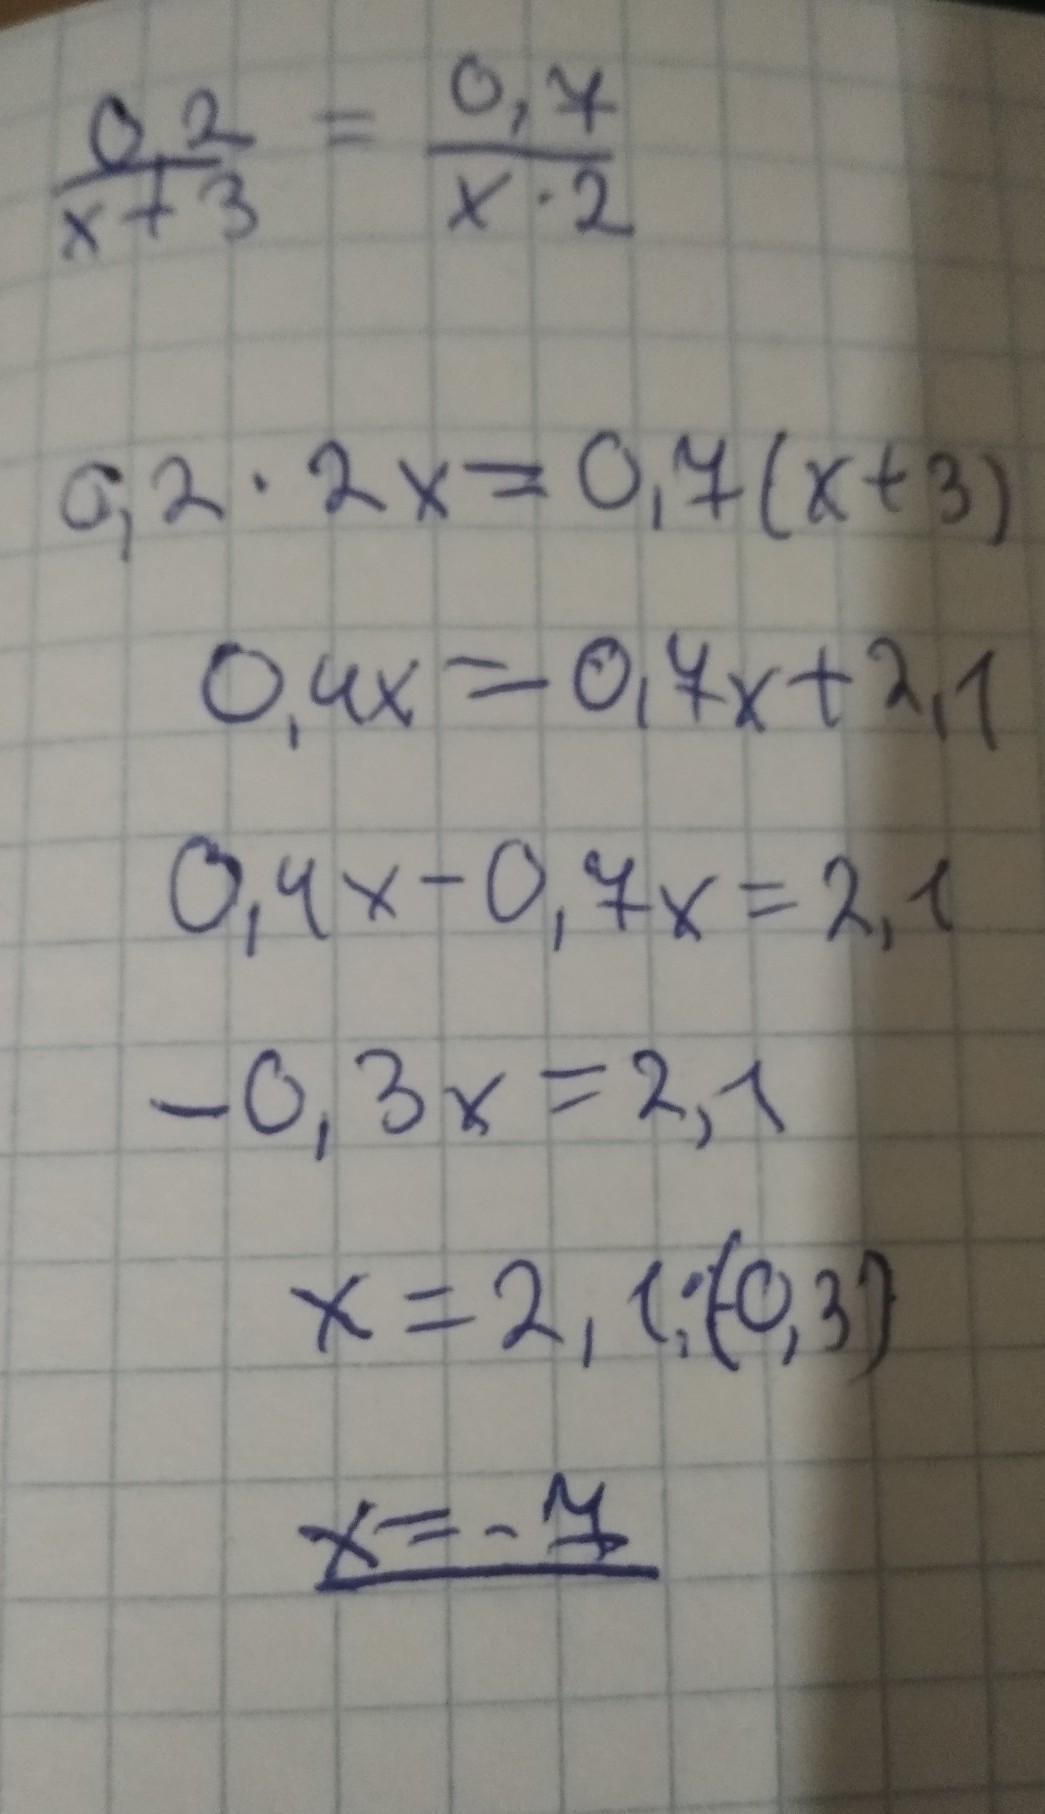 0,2/(x+3) = 0,7/(x·2)
0,2·2x=0,7(x+3)
0,4x=0,7x+2,1
0,4x-0,7x=2,1
-0,3x=2,1
x=2,1:(-0,3)
x=-7